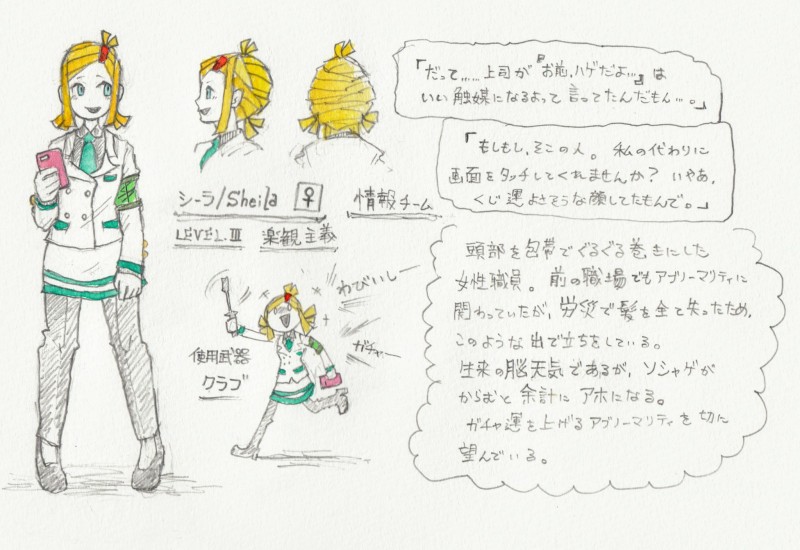 「だって……上司が『お前、ハゲだよ…』は
いい触媒になるよって言ってたんだもん…。」
「もしもし、そこの人。私の代わりに
画面をタッチしてくれませんか？いやあ、
くじ運よさそうな顔してたもんで。」
シーラ/Sheila ♀ 情報チーム
LEVEL.Ⅲ 楽観主義
頭部を包帯でぐるぐる巻きにした
女性職員。前の職場でもアブノーマリティに
関わっていたが、労災で髪を全て失ったため、
このような出で立ちをしている。
生来の脳天気であるが、ソシャゲが
からむと余計にアホになる。
ガチャ運を上げるアブノーマリティを切に
望んでいる。
わびいしー
ガチャー
使用武器
クラブ